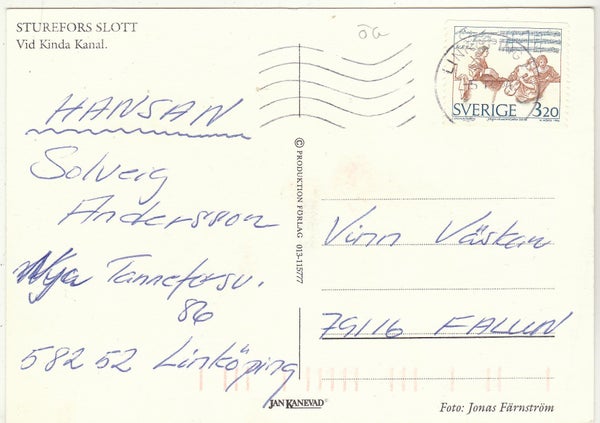 STUREFORS SLOTT
Vid Kinda Kanal.
ÖG
HANSAN
Solveig
Andersson
Nya Tanneforsv.
86
582 52 Linköping
© PRODUKTION FÖRLAG 013-115777
SVERIGE 3.20
Vinn Väskan
79116 FALUN
JAN KANEVAD®
Foto: Jonas Färnström